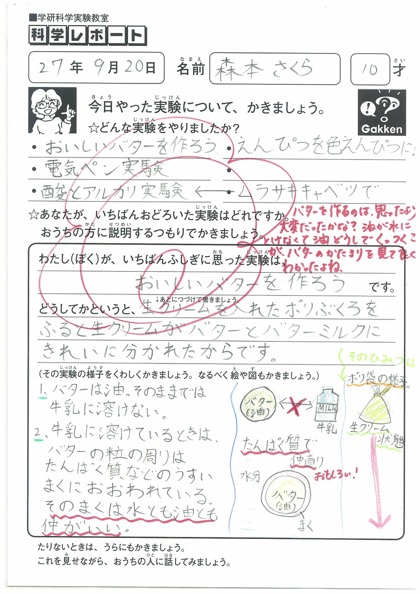 ■学研科学実験教室
科学レポート
27年 9月 20日 名前 森本 さくら 10才
なまえ さい
きょう じっけん
今日やった実験について、かきましょう。
Gakken
☆どんな実験をやりましたか?
・おいしいバターを作ろう ・えんぴつを色えんぴつに
・電気ペン実験
・酸とアルカリ実験 ← ムラサキキャベツで
☆あなたが、いちばんおどろいた実験はどれですか。
おうちの方に説明するつもりでかきましょう。
バターを作るのは、思ったより
大変だったかな? 油が水に
とけなくて油どうしでくっつくこ
とが、バターのかたまりを見て良く
わかったよね。
わたし(ぼく)が、いちばんふしぎに思った実験は、
おいしいバターを作ろう です。
↓あとにつづけて書きましょう
どうしてかというと、生クリームを入れたポリぶくろを
ふると生クリームがバターとバターミルクに
きれいに分かれたからです。
(その実験の様子をくわしくかきましょう。なるべく絵や図もかきましょう。)
1、バターは油。そのままでは
牛乳に溶けない。
2、牛乳に溶けているときは、
バターの粒の周りは
たんぱく質などのうすい
まくにおおわれている。
そのまくは水とも油とも
仲がいい。
バター
(油)
MILK
牛乳
たんぱく質で
仲直り
おもしろい!
水分
バター
(油)
まく
そのひみつは
ポリ袋の様子
生クリーム
状態
たりないときは、うらにもかきましょう。
これを見せながら、おうちの人に話してみましょう。